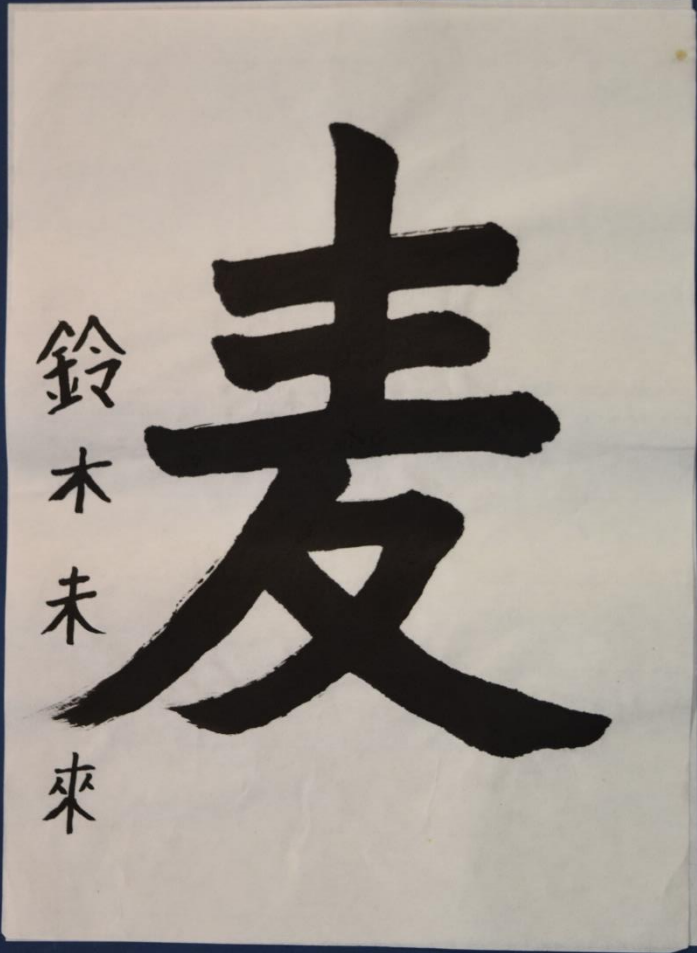 麦
鈴木未來